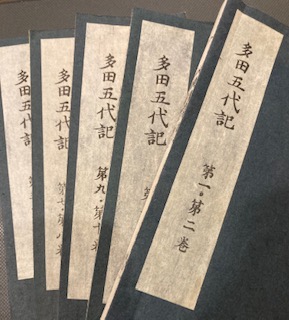 多田五代記 第一・第二巻
多田五代記 第
多田五代記 第九・第十巻
多田五代記 第七・第八
多田五代記 第